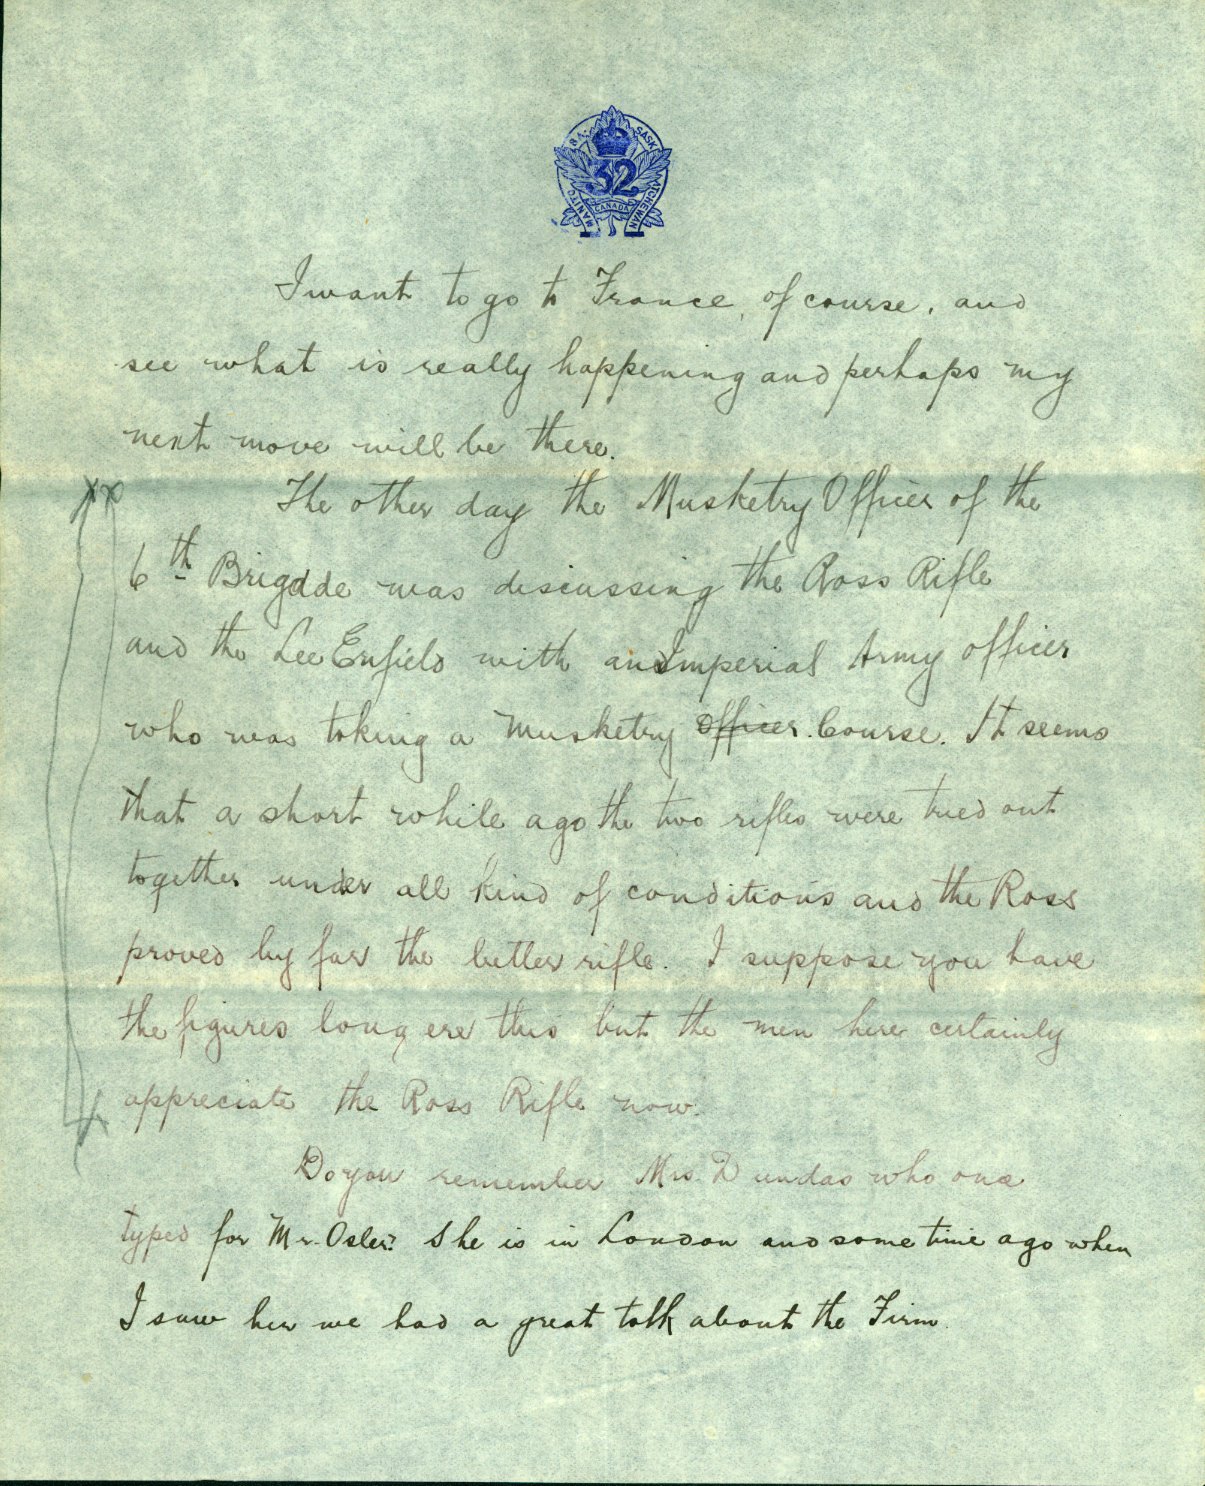 MANITOBA SASKATCHEWAN
32
CANADA
I want to go to France, of course, and
see what is really happening and perhaps my
next move will be there.
The other day the Musketry Officer of the
6th Brigade was discussing the Ross Rifle
and the Lee Enfield with an Imperial Army officer
who was taking a Musketry Officer. Course. It seems
that a short while ago the two rifles were tried out
together under all kind of conditions and the Ross
proved by far the better rifle. I suppose you have
the figures long ere this but the men here certainly
appreciate the Ross Rifle now.
Do you remember Mrs. Dundas who once
typed for Mr. Osler? She is in London and some time ago when
I saw her we had a great talk about the Firm.